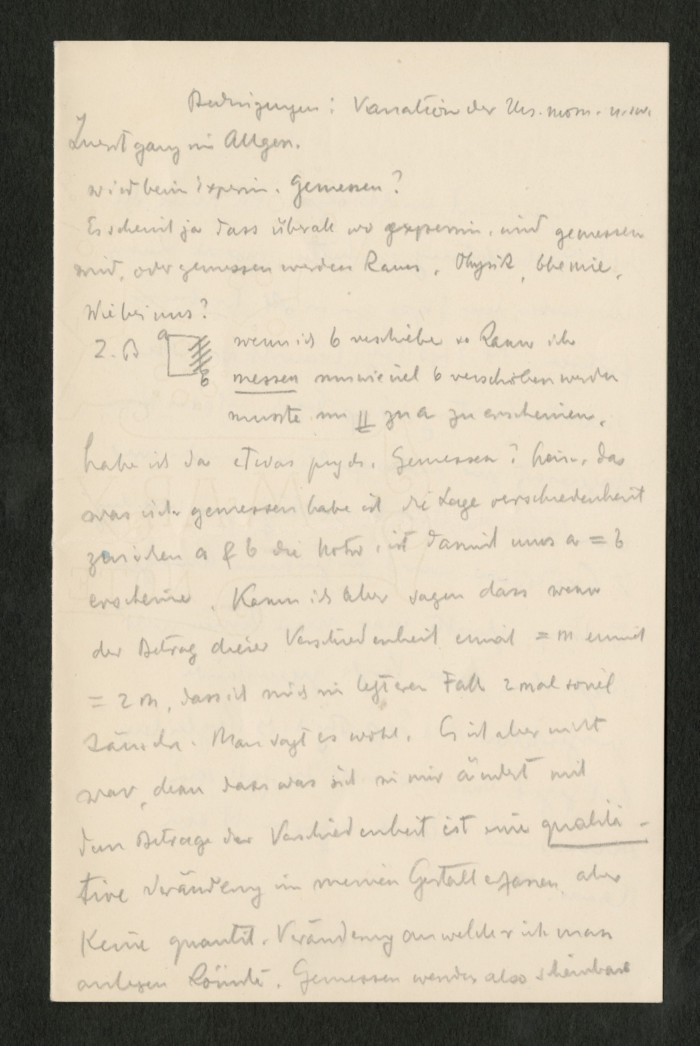 Bedingungen: Variation der Urs. mom. u.sw.
Zuerst ganz im Allgem.
wird beim Experim. Gemessen?
Es scheint ja dass überall wo experim. wird gemessen
wird, oder gemessen werden kann. Physik, Chemie.
Wie bei uns?
Z.B. a b wenn ich b verschiebe so kann ich
messen um wieviel b verschoben werden
musste um || zu a zu erscheinen.
habe ich da etwas psych. Gemessen? Nein, das
was ich gemessen habe ist die Lage verschiedenheit
zwischen a & b die notw. ist damit uns a = b
erscheine. Kann ich aber sagen dass wenn
der Betrag dieser Verschiedenheit einmal = m einmal
= 2 m, dass ich mich im letzteren Fall 2 mal soviel
täusche. Man sagt es wohl. Es ist aber nicht
war, denn dass was sich in mir ändert mit
dem Betrage der Verschiedenheit ist eine qualita-
tive Veränderung im meinem Gestalterfassen, aber
Keine quantit. Veränderung an welcher ich mass
anlegen könnte. Gemessen werden also scheinbar